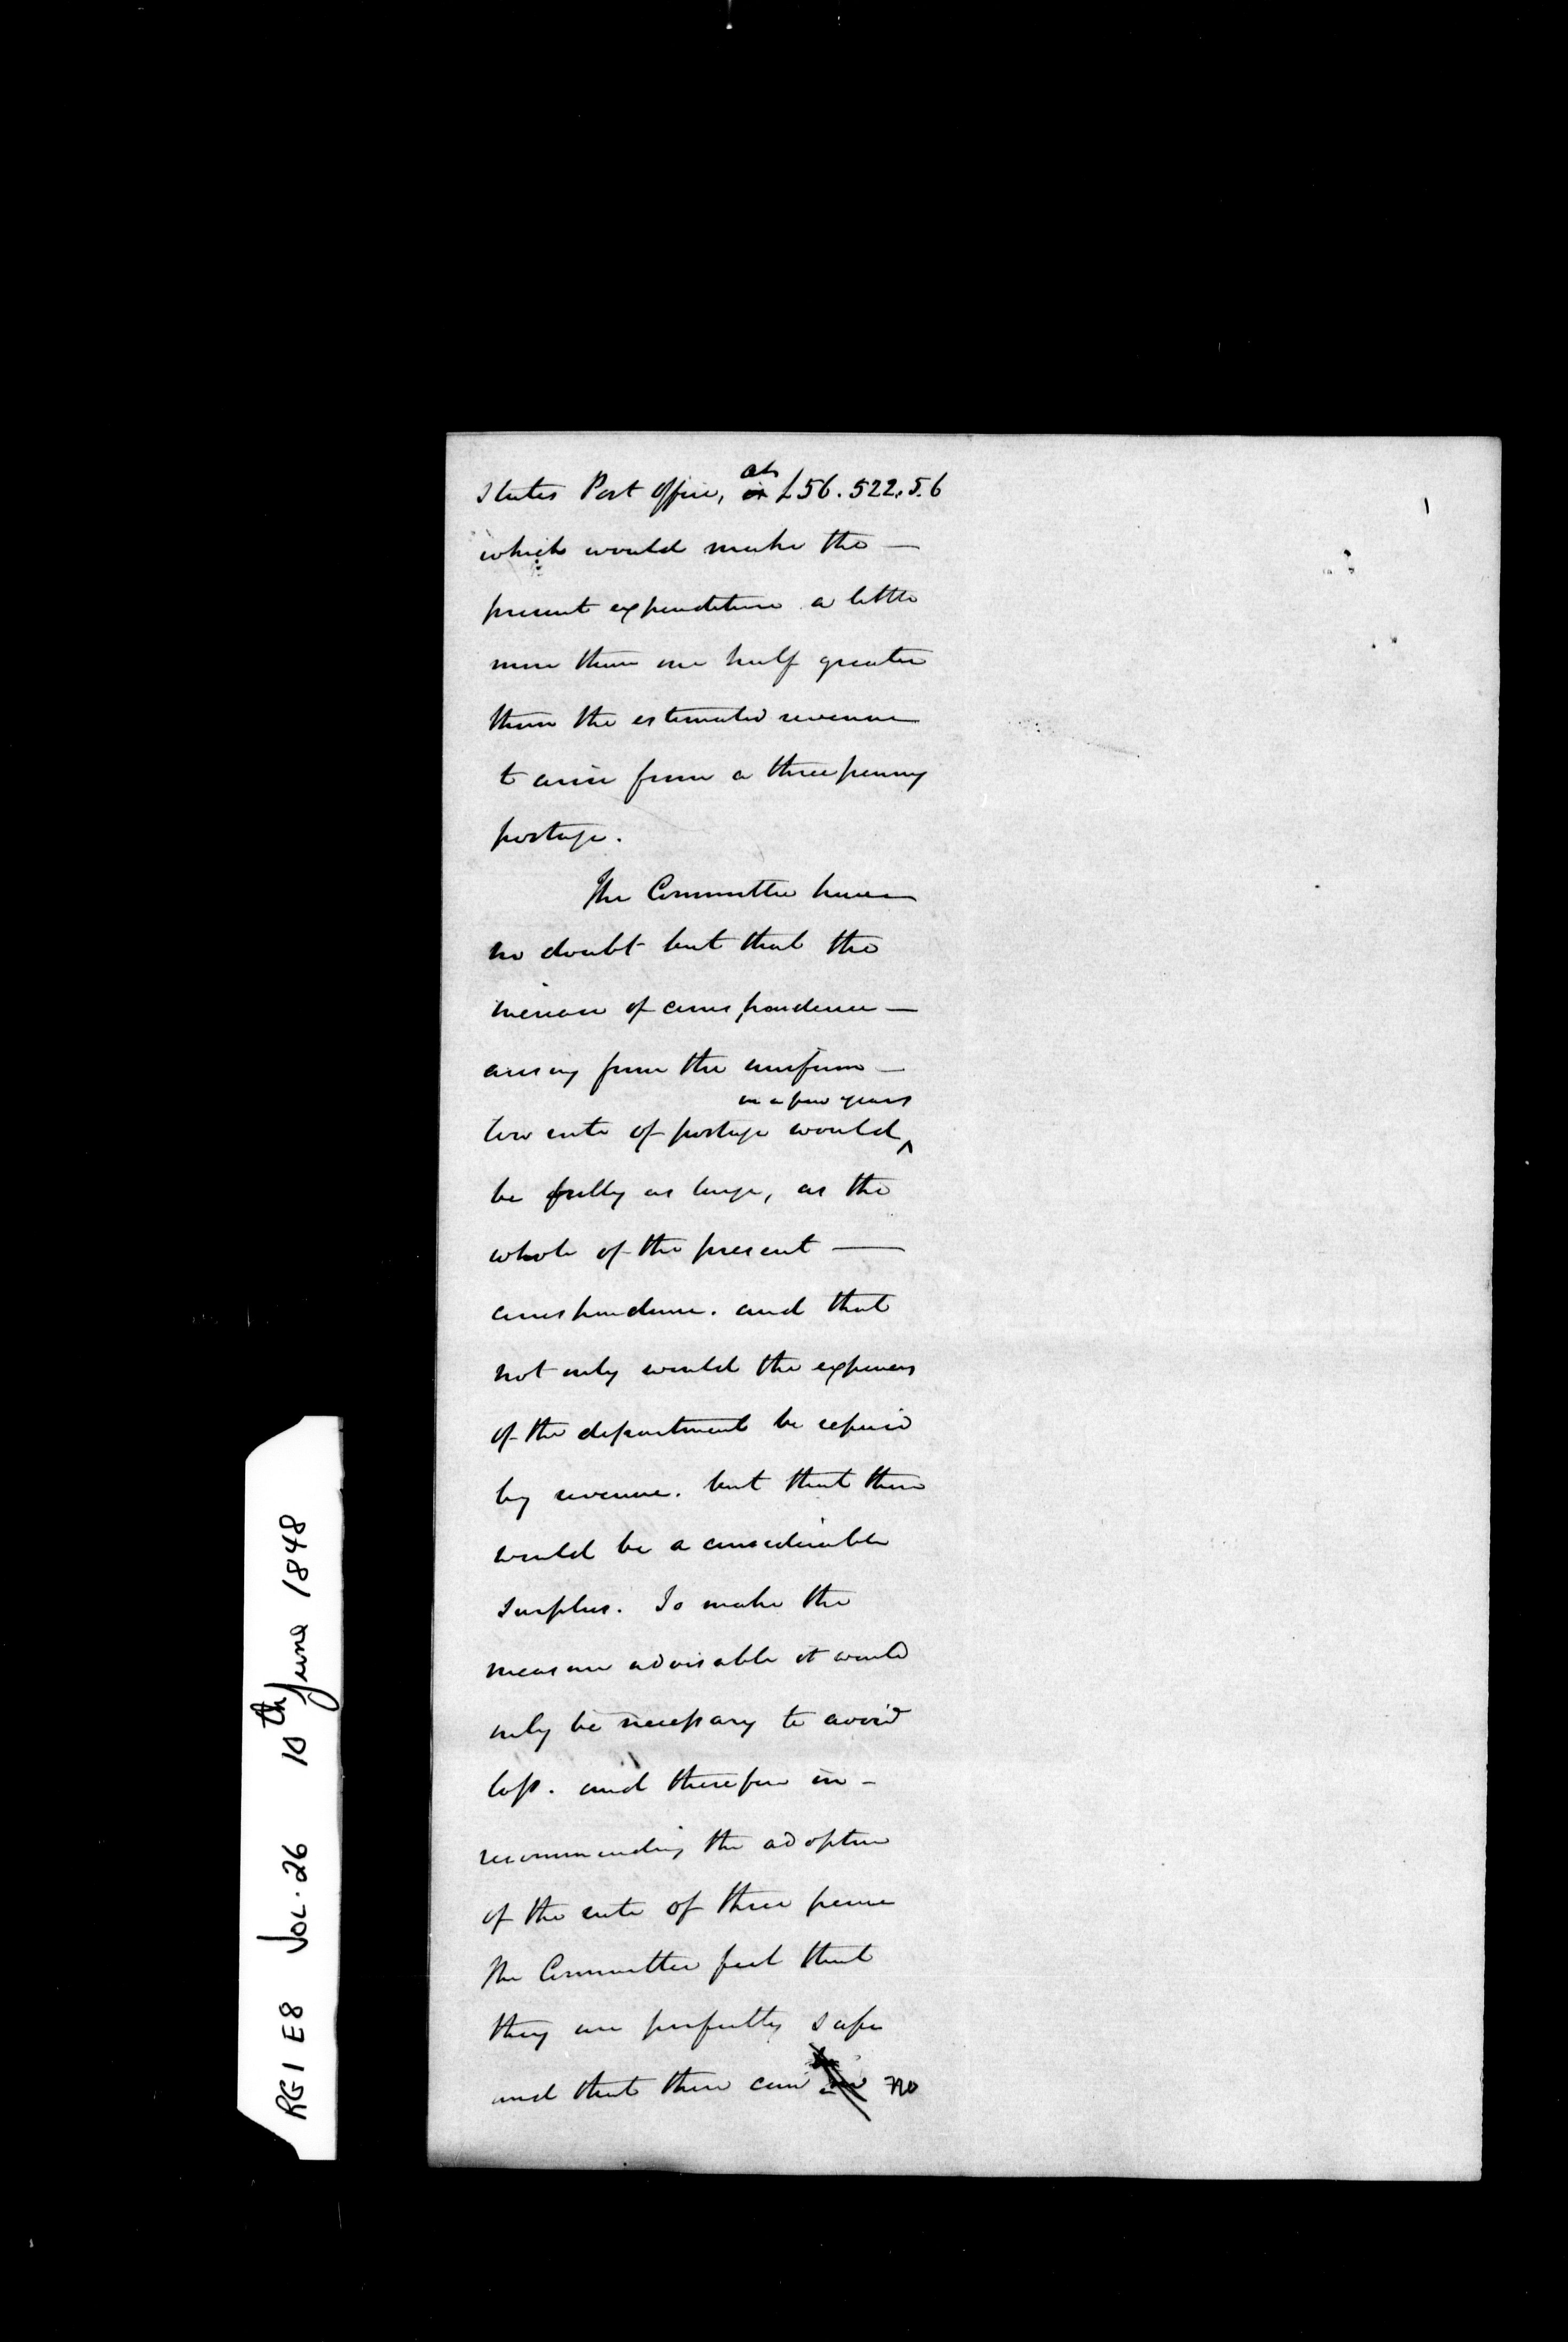 States Post Office, at £56.522.5.6
which would make the —
present expenditure a little
more than one half greater
than the estimated revenue
to arise from a three penny
postage.
The Committee have
no doubt but that the
increase of correspondence —
arising from the uniform —
in a few years
low rate of postage would ^
be fully as large, as the
whole of the present —
correspondence. and that
not only would the expenses
of the department be repaid
by revenue. but that there
would be a considerable
surplus. To make the
measure advisable it would
only be necessary to avoid
loss. and therefore in -
recommending the adoption
of the rate of three pence
the Committee feel that
they are perfectly safe
and that there can no
1
RG1 E8 VOL. 26 10th June 1848